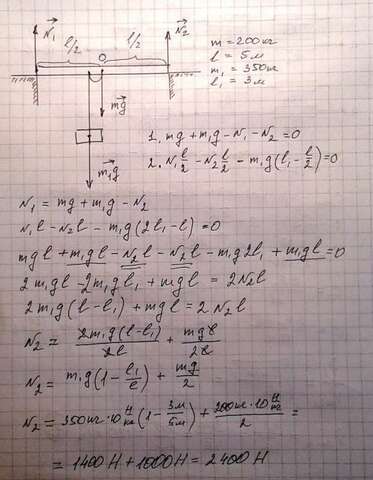 N₁ l/2 l/2 N₂
O
mg
m₁g
m = 200 кг
l = 5 м
m₁ = 350 кг
l₁ = 3 м
1. mg + m₁g - N₁ - N₂ = 0
2. N₁ l/2 - N₂ l/2 - m₁g (l₁ - l/2) = 0
N₁ = mg + m₁g - N₂
N₁l - N₂l - m₁g (2l₁ - l) = 0
mgl + m₁gl - N₂l - N₂l - m₁g2l₁ + m₁gl = 0
2m₁gl - 2m₁gl₁ + mgl = 2N₂l
2m₁g (l - l₁) + mgl = 2N₂l
N₂ = 2m₁g (l - l₁)/2l + mgl/2l
N₂ = m₁g (1 - l₁/l) + mg/2
N₂ = 350 кг · 10 Н/кг (1 - 3м/5м) + 200 кг · 10 Н/кг / 2 =
= 1400 Н + 1000 Н = 2400 Н